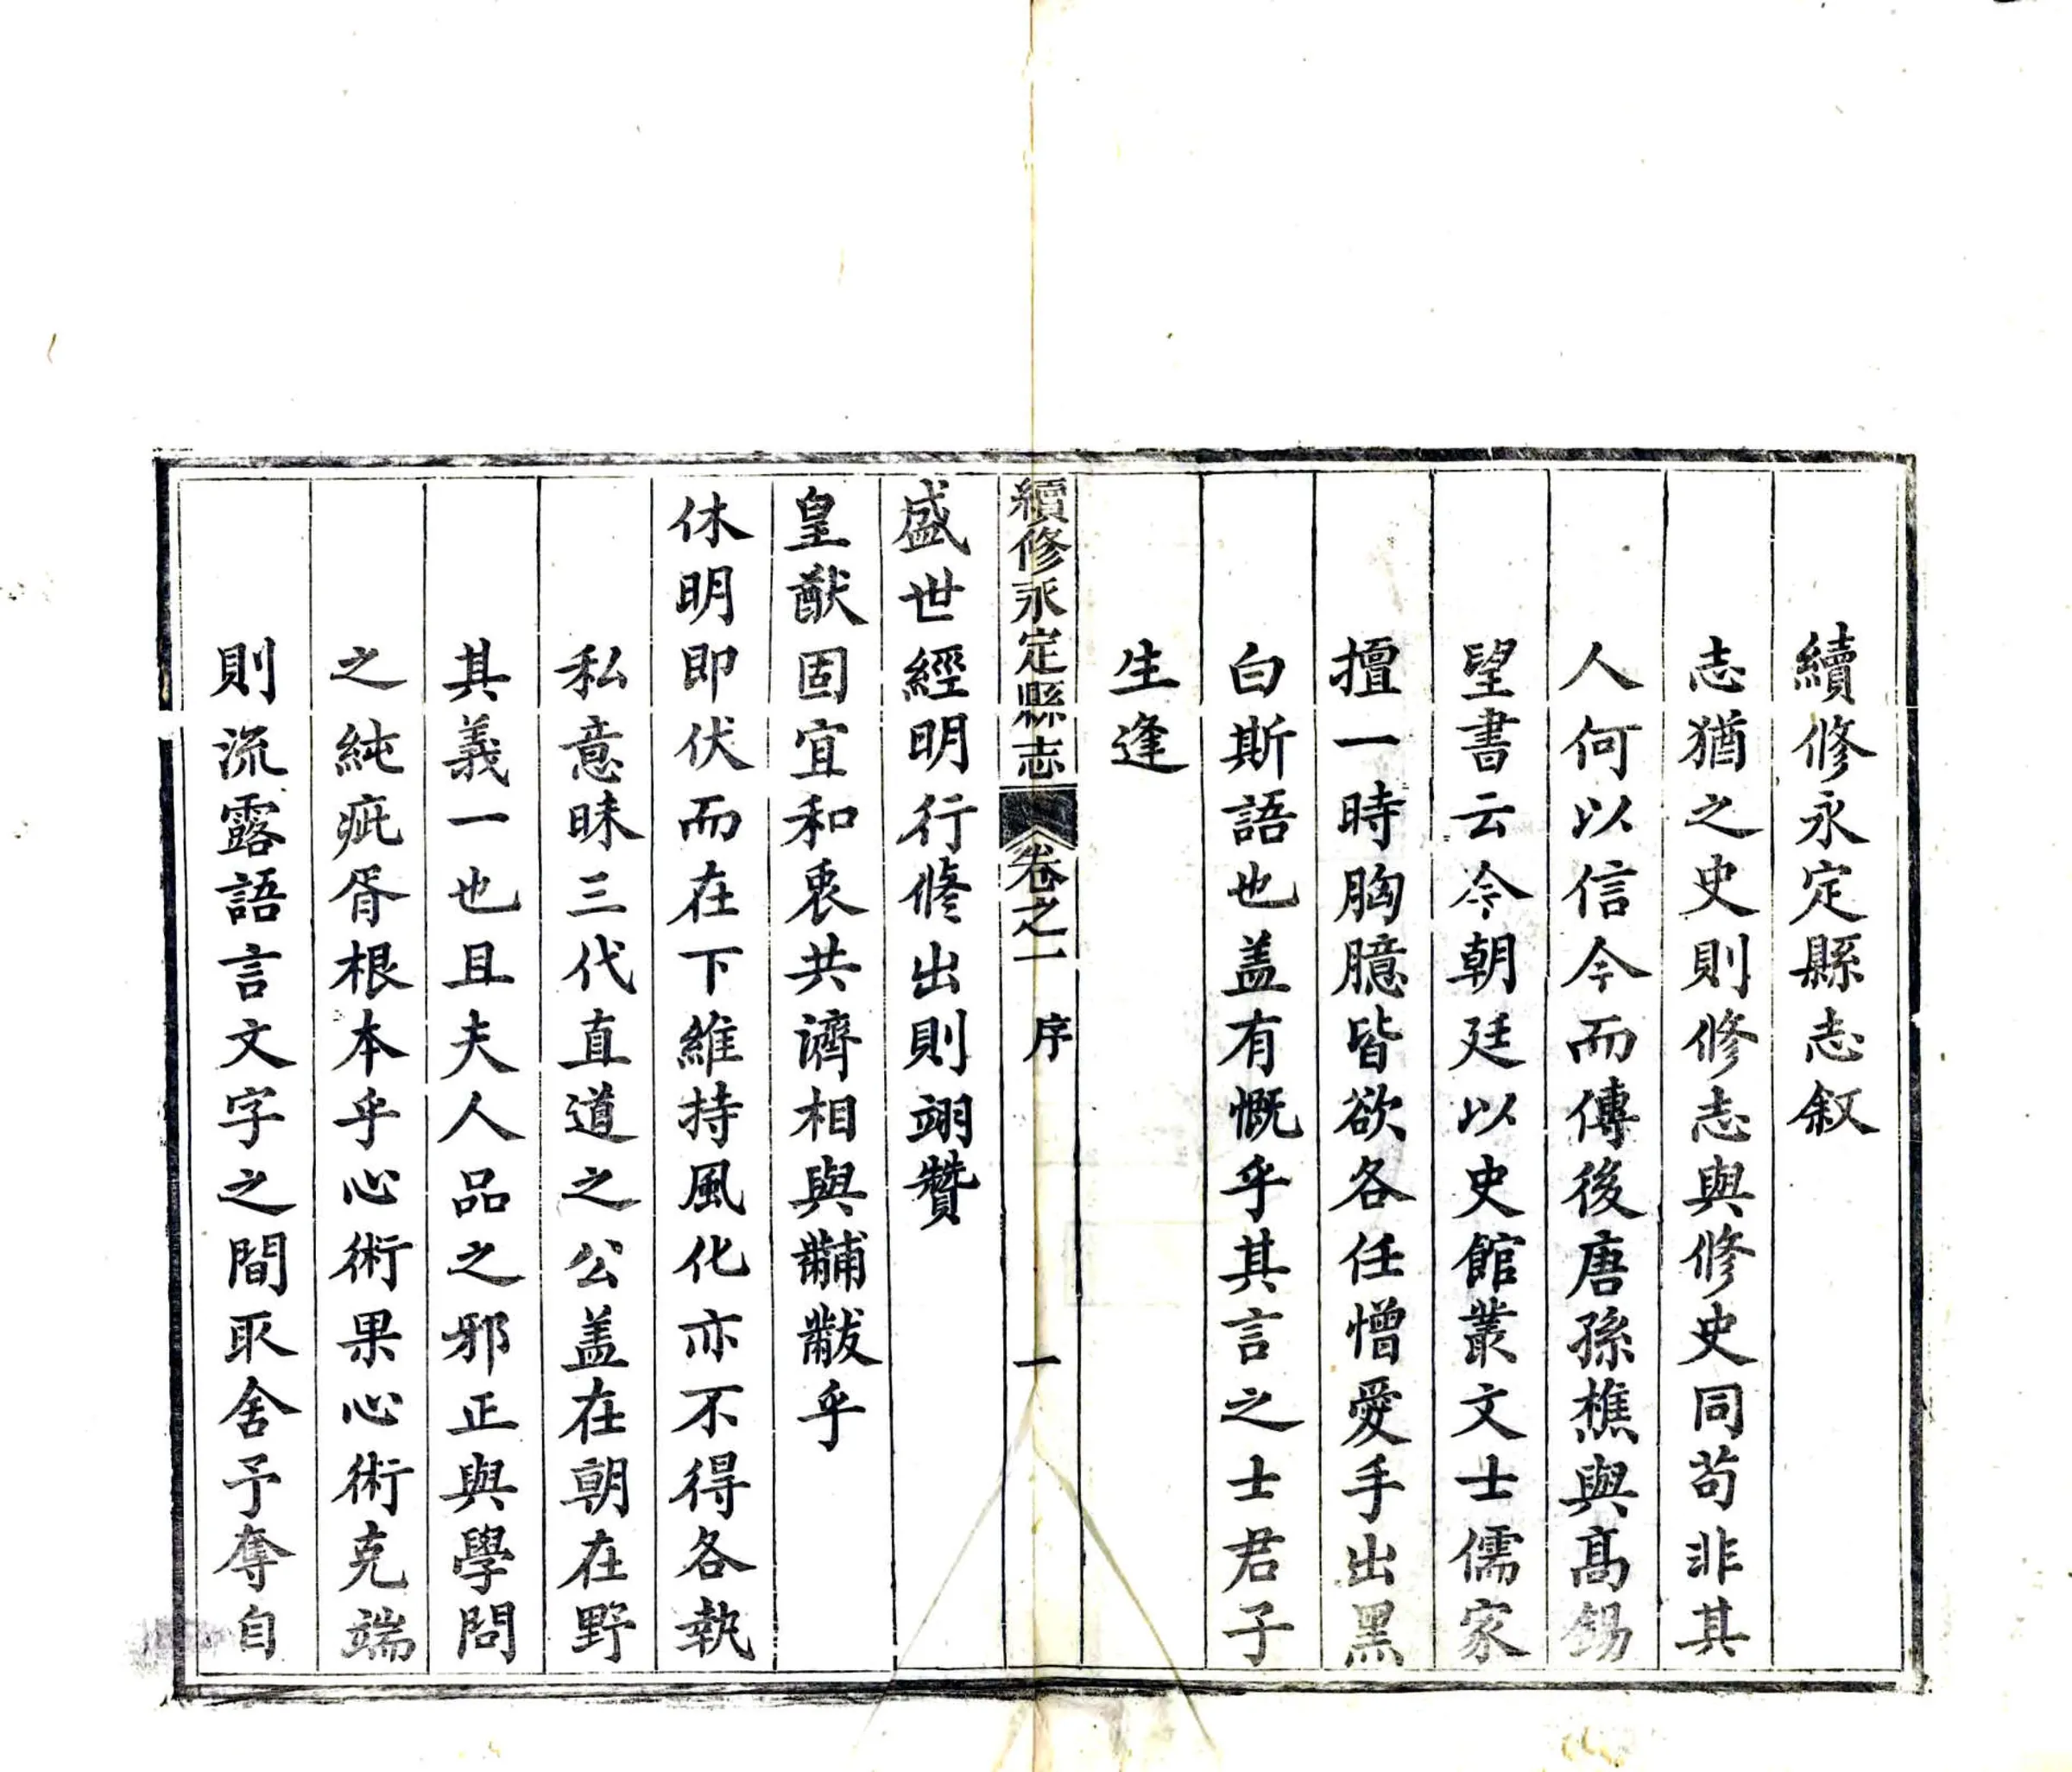 續修永定縣志叙
志猶之史則修志與修史同苟非其
人何以信今而傳後唐孫樵與高錫
望書云今朝廷以史館叢文士儒家
擅一時胸臆皆欲各任憎愛手出黑
白斯語也盖有慨乎其言之士君子
生逢
續修永定縣志 卷之一 序 一
盛世經明行修出則翊贊
皇猷固宜和衷共濟相與黼黻乎
休明即伏而在下維持風化亦不得各執
私意昧三代直道之公盖在朝在野
其義一也且夫人品之邪正與學問
之純疵胥根本乎心術果心術克端
則流露語言文字之間取舍予奪自